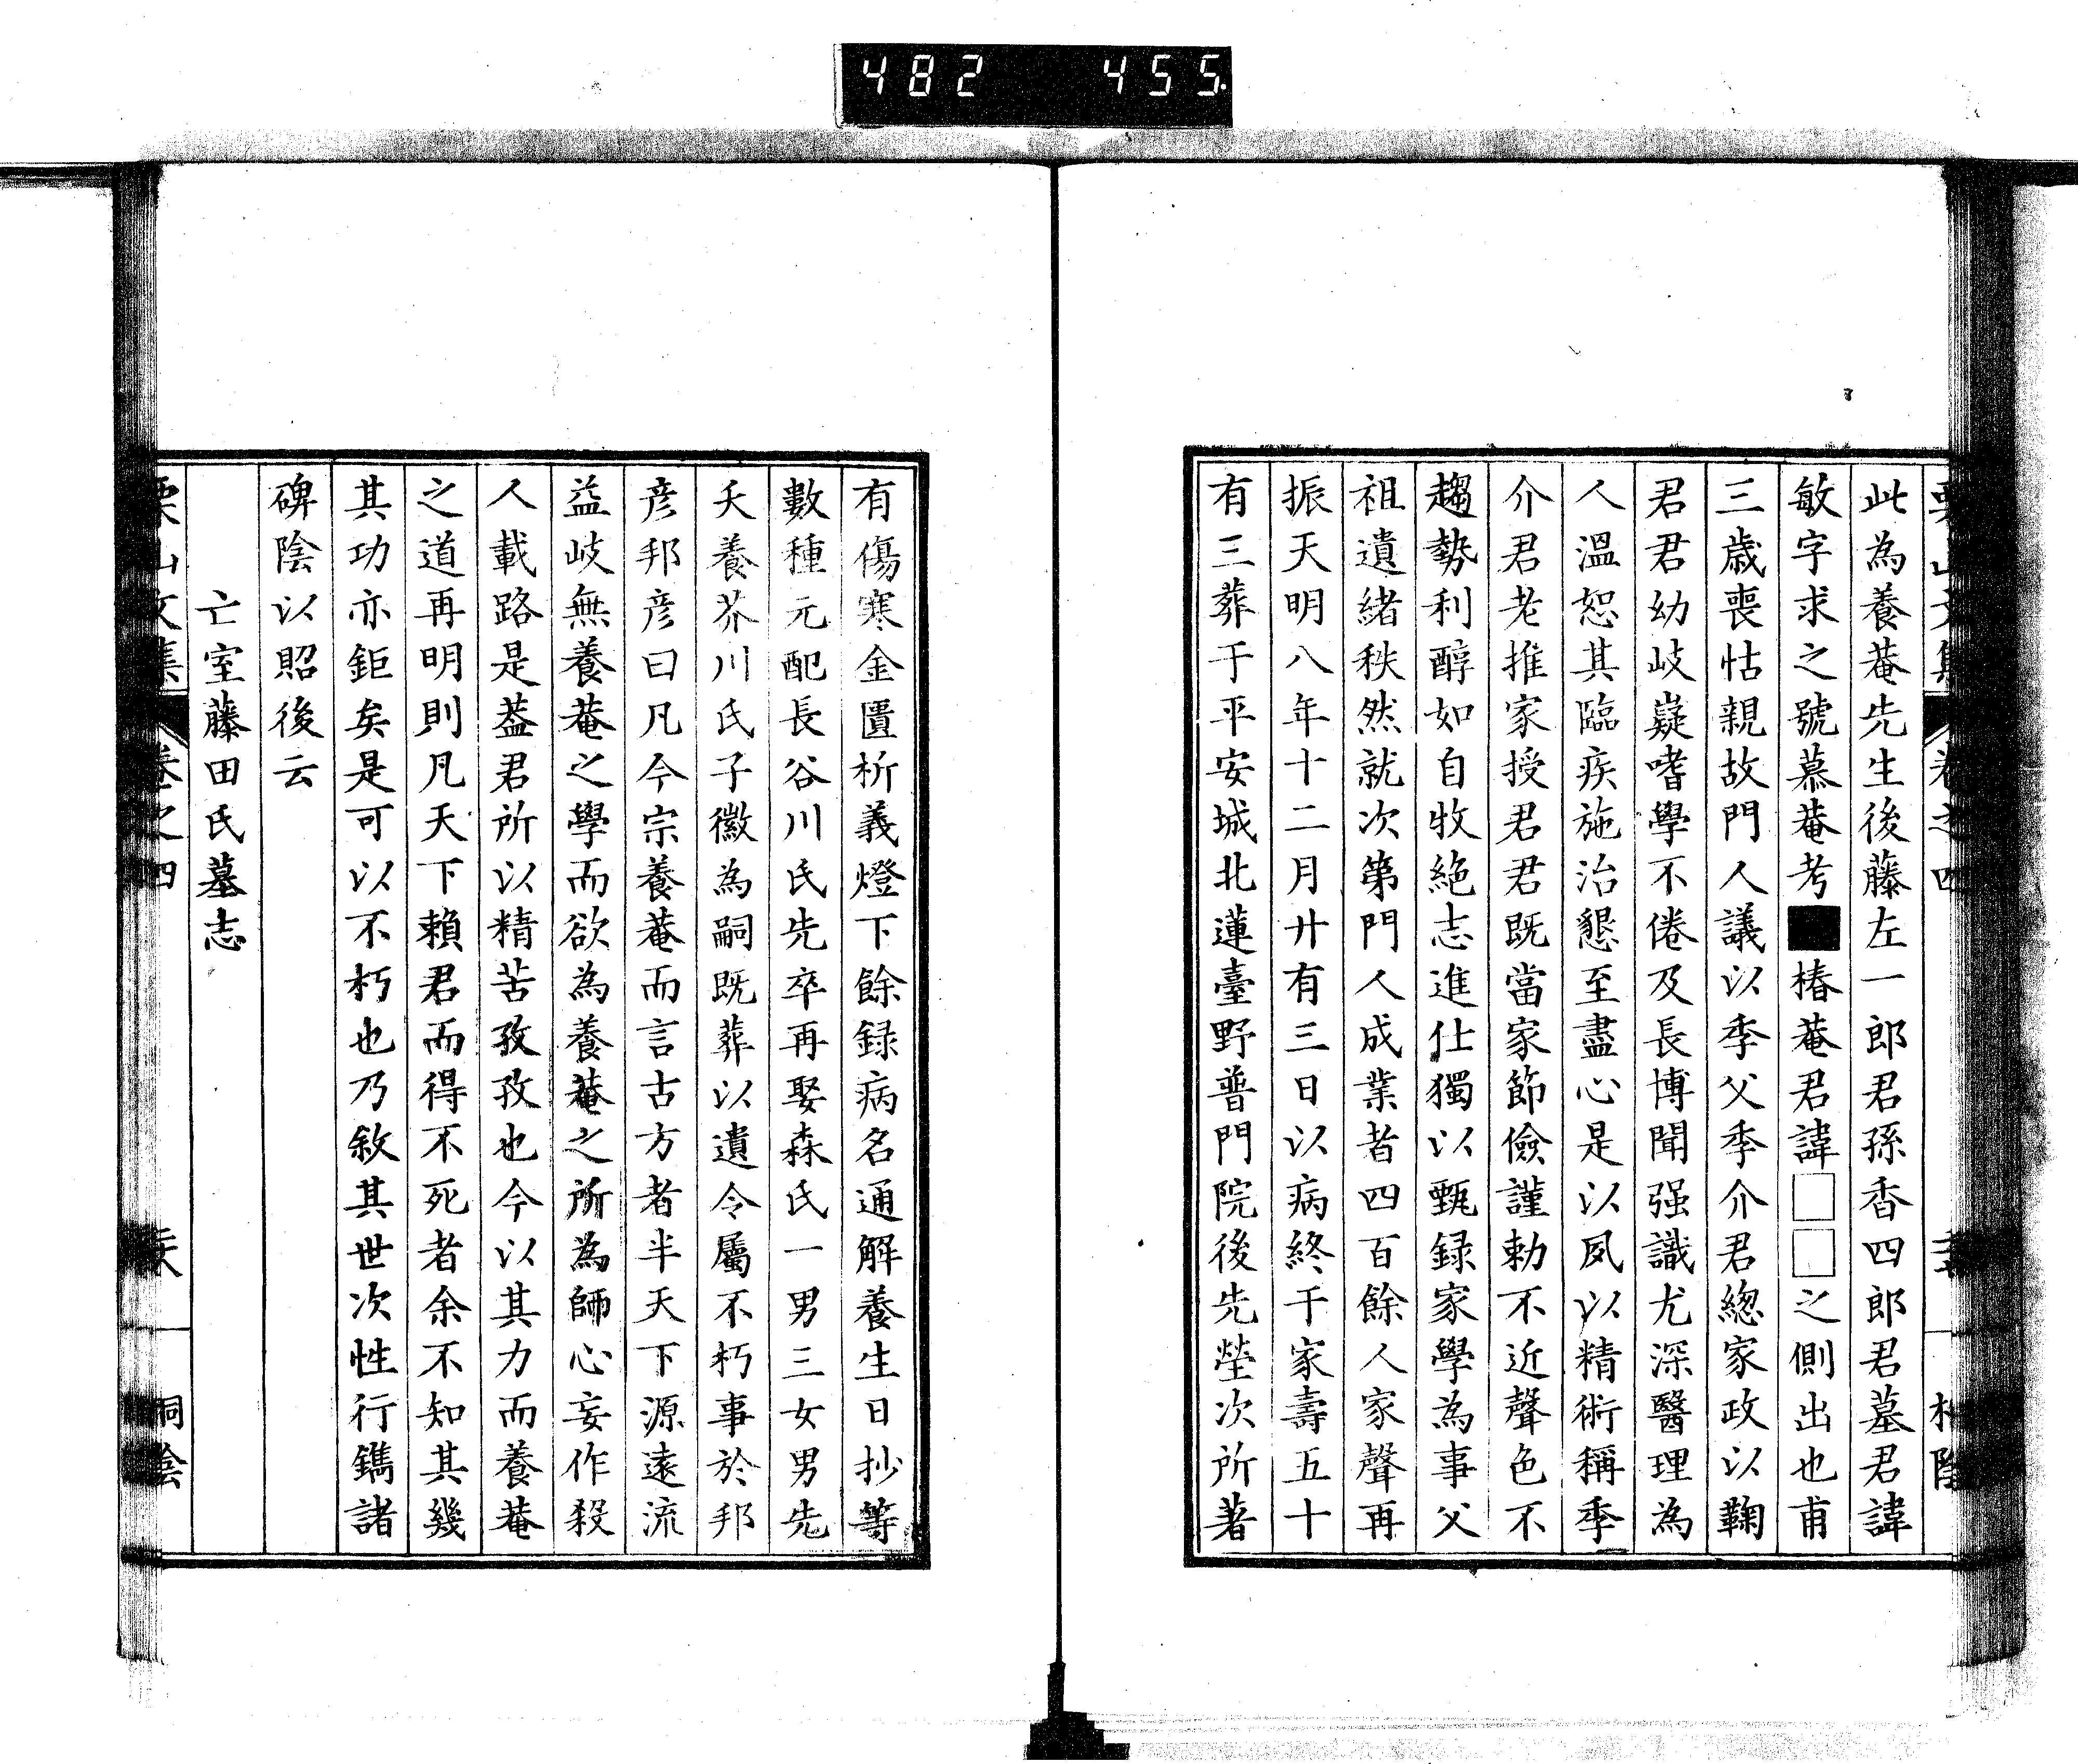 482 455.
此為養菴先生後藤左一郎君孫香四郎君墓君諱
敏字求之號慕菴考■椿菴君諱□□之側出也甫
三歳喪怙親故門人議以季父季介君緫家政以鞠
君君幼岐嶷嗜學不倦及長博聞强識尤深醫理為
人溫恕其臨疾施治懇至盡心是以夙以精術稱季
介君老推家授君君既當家節儉謹勅不近聲色不
趨勢利醇如自牧絶志進仕獨以甄録家學為事父
祖遺緒秩然就次第門人成業者四百餘人家聲再
振天明八年十二月廿有三日以病終于家壽五十
有三葬于平安城北蓮臺野普門院後先塋次所著
有傷寒金匱析義燈下餘録病名通解養生日抄等
數種元配長谷川氏先卒再娶森氏一男三女男先
夭養芥川氏子徽為嗣既葬以遺令屬不朽事於邦
彦邦彦曰凡今宗養菴而言古方者半天下源遠流
益歧無養菴之學而欲為養菴之所為師心妄作殺
人載路是葢君所以精苦孜孜也今以其力而養菴
之道再明則凡天下頼君而得不死者余不知其幾
其功亦鉅矣是可以不朽也乃敘其世次性行鐫諸
碑陰以照後云
亡室藤田氏墓志
栗山文集 卷之四 桐陰